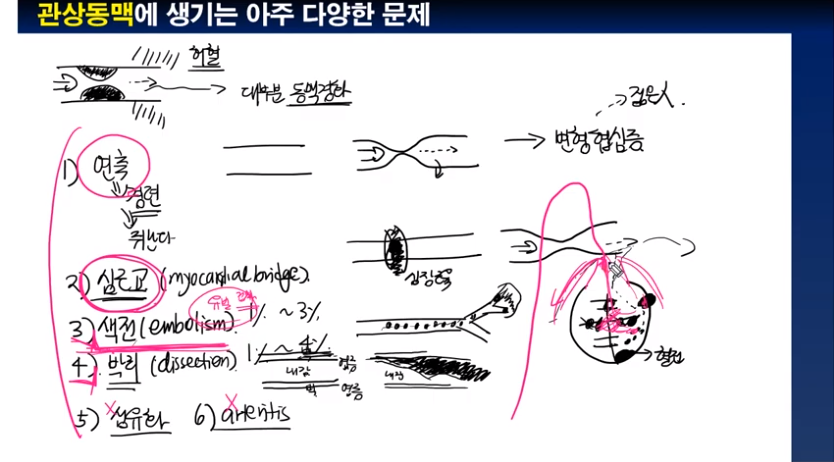 관상동맥에 생기는 아주 다양한 문제
허혈
대부분 동맥경화
젊은人.
1) 연축
변형협심증
경련
쥐난다
2) 심근교 (myocardial bridge).
심장근육
3) 색전 (embolism). 1% ~3%
4) 박리 (dissection) 1% ~ 4%.
내강
내강
혈전
5) 섬유화 6) arteritis